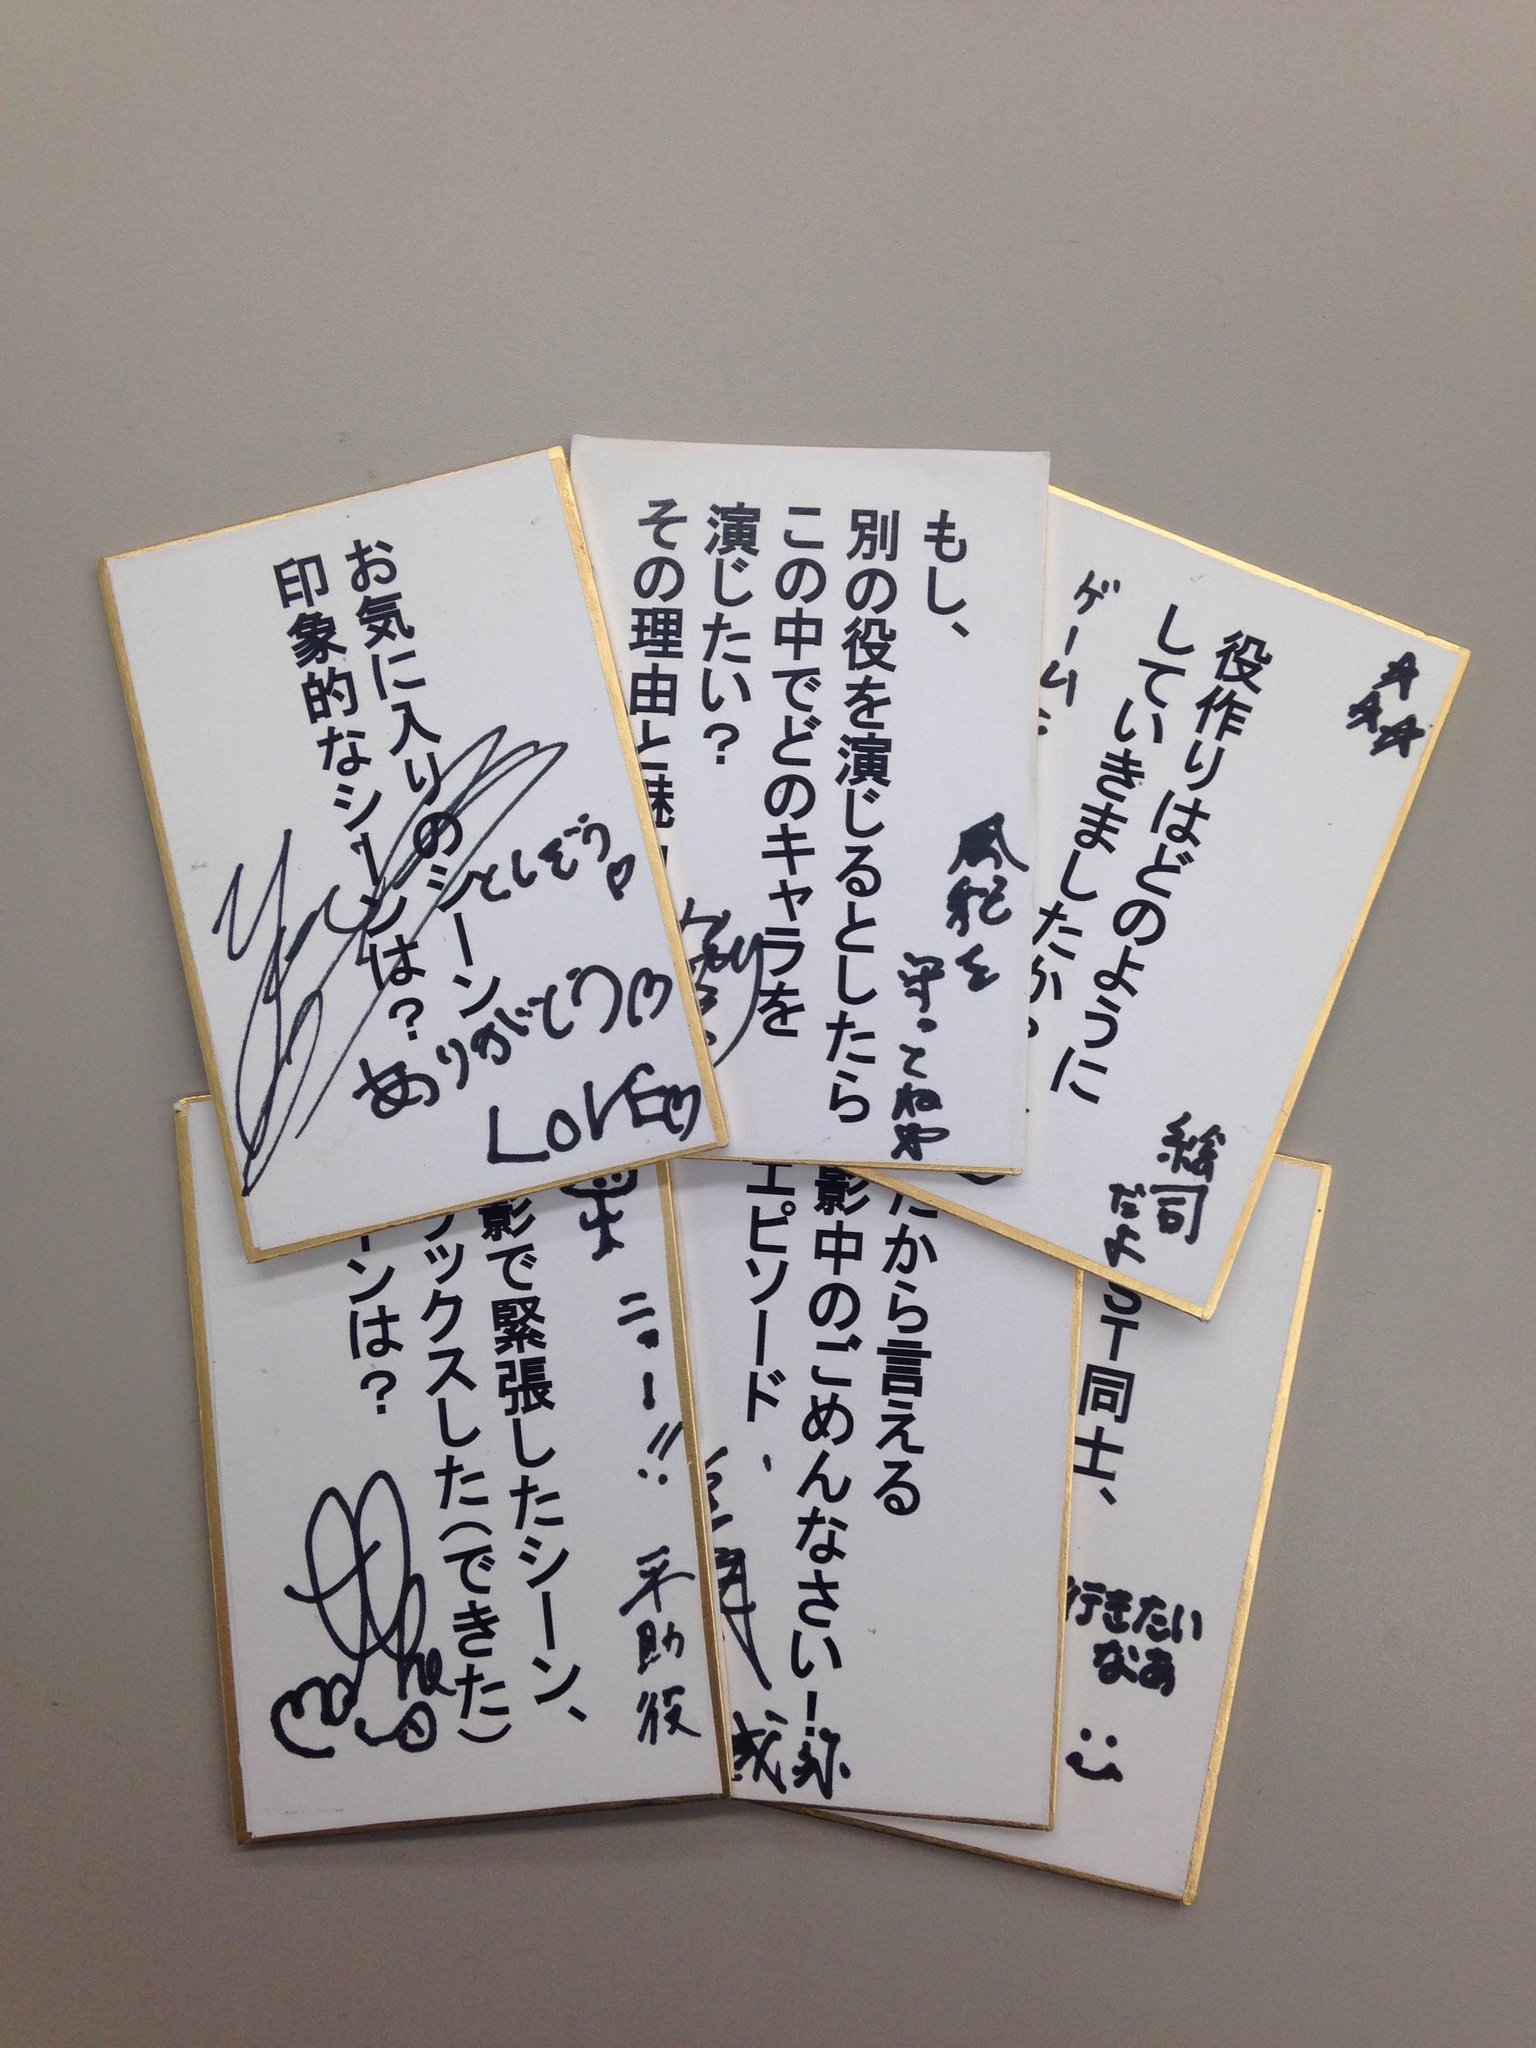 お気に入りのシーン
印象的なシーンは？
としぞう
ありがとう
LOVE
もし、
別の役を演じるとしたら
この中でどのキャラを
演じたい？
その理由と魅
風紀を
守ってねや
役作りはどのように
していきましたか
ゲームに
絵司
だよ
影で緊張したシーン、
ックスした（できた）
ーンは？
ニャー!!
平助役
だから言える
影中のごめんなさい！
エピソード
ST同士、
行きたい
なあ